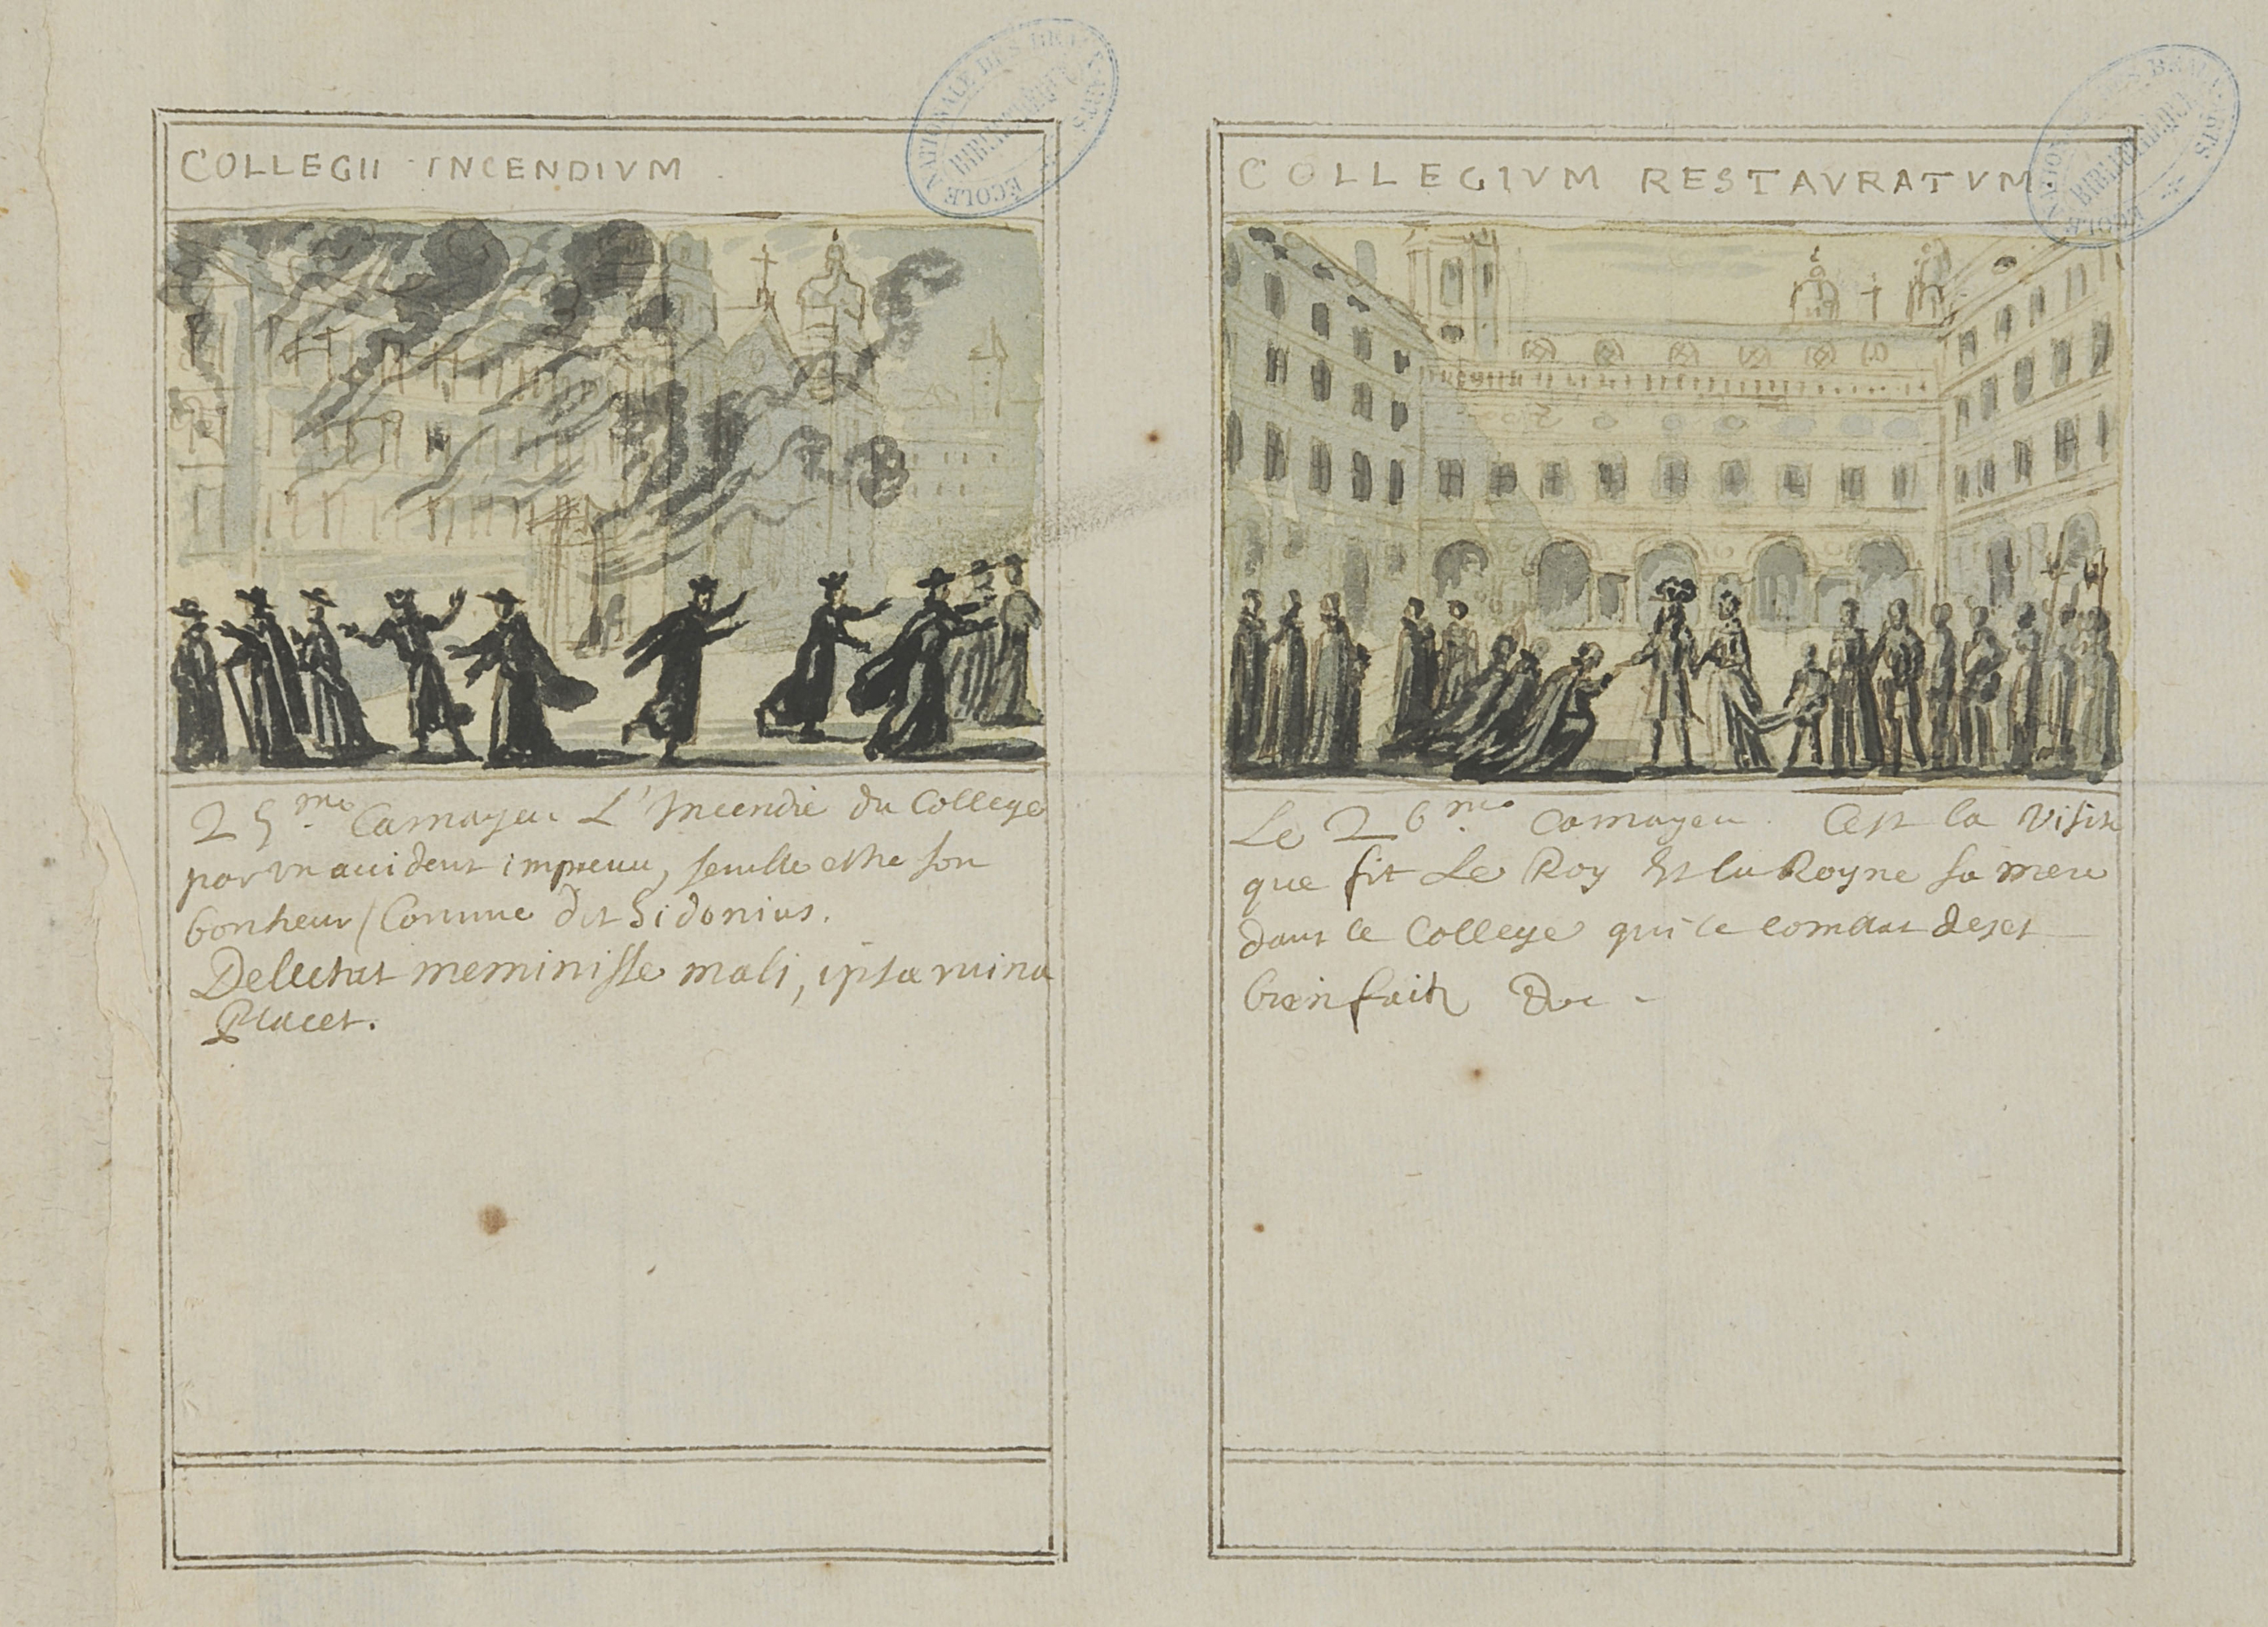 COLLEGII INCENDIVM
25.me Camayeu L'Incendie du College
par vn accident impreuu, semble estre son
bonheur / Comme dit Sidonius.
Delectat meminisse mali, ipsa ruina
Placet.
COLLEGIVM RESTAVRATVM
Le 26.me Camayeu. Cest la visite
que fit Le Roy Et la Royne sa mere
dans le College qui le combla de ses
bienfaits &c -
ECOLE NATIONALE DES BEAUX-ARTS
BIBLIOTHEQUE
ECOLE NATIONALE DES BEAUX-ARTS
BIBLIOTHEQUE